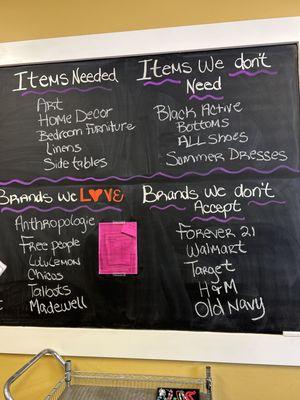 Items Needed
Art
Home Decor
Bedroom Furniture
Linens
Side tables
Items We don't
Need
Black Active
Bottoms
ALL Shoes
Summer Dresses
Brands we LOVE
Anthropologie
Free people
LuLuLemon
Chicos
Talbots
Madewell
Brands we don't
Accept
Forever 21
Walmart
Target
H&M
Old Navy